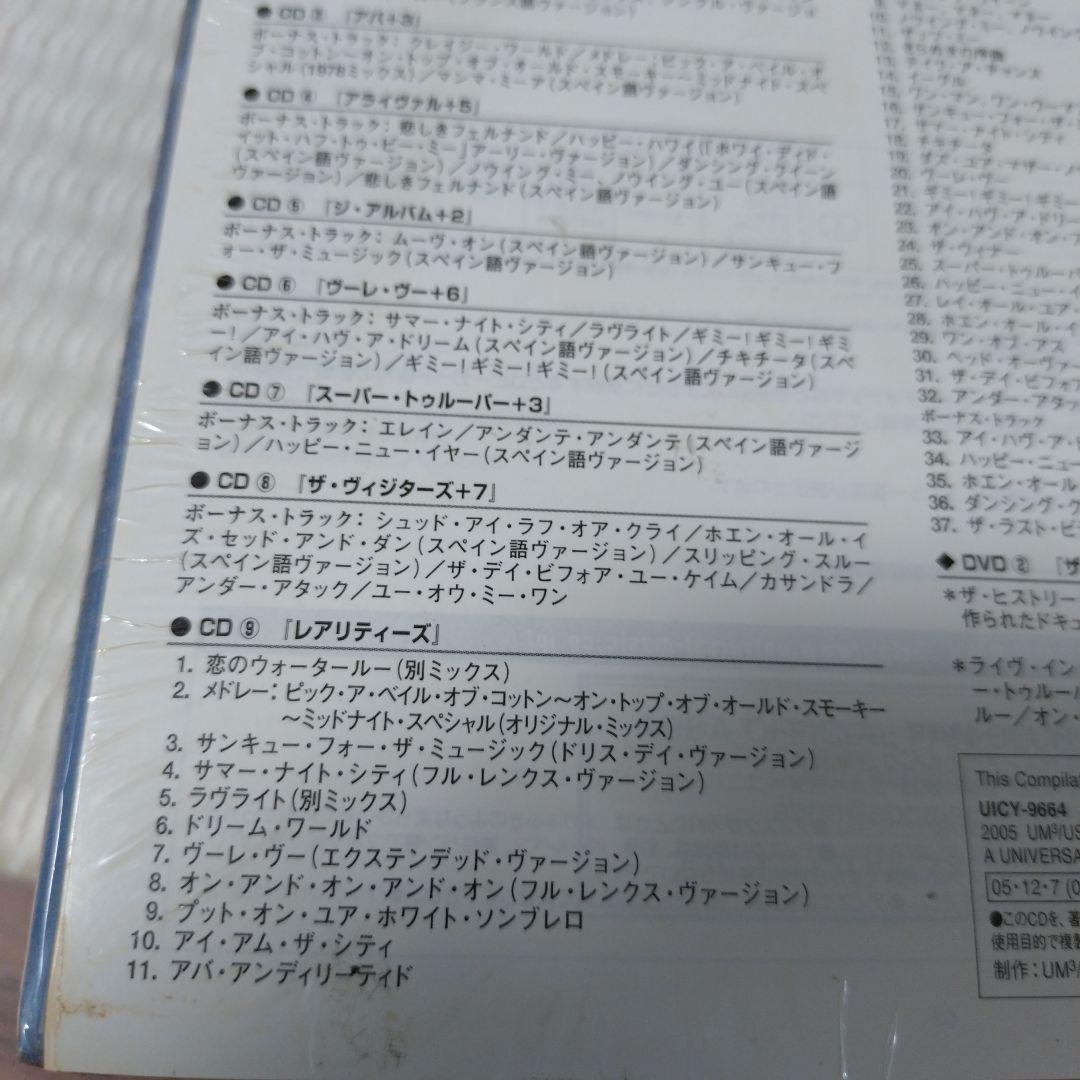 ● CD ③ 『アバ+3』
ボーナス・トラック：クレイジー・ワールド／メドレー：ピック・ア・ベイル・オ
ブ・コットン〜オン・トップ・オブ・オールド・スモーキー〜ミッドナイト・スペ
シャル(1978ミックス)／マンマ・ミーア(スペイン語ヴァージョン)
● CD ④ 『アライヴァル+5』
ボーナス・トラック：悲しきフェルナンド／ハッピー・ハワイ(『ホワイ・ディド・
イット・ハフ・トゥ・ビー・ミー』アーリー・ヴァージョン)／ダンシング・クイーン
(スペイン語ヴァージョン)／ノウイング・ミー、ノウイング・ユー(スペイン語
ヴァージョン)／悲しきフェルナンド(スペイン語ヴァージョン)
● CD ⑤ 『ジ・アルバム+2』
ボーナス・トラック：ムーヴ・オン(スペイン語ヴァージョン)／サンキュー・フ
ォー・ザ・ミュージック(スペイン語ヴァージョン)
● CD ⑥ 『ヴーレ・ヴー+6』
ボーナス・トラック：サマー・ナイト・シティ／ラヴライト／ギミー！ギミー！ギミ
ー！／アイ・ハヴ・ア・ドリーム(スペイン語ヴァージョン)／チキチータ(スペ
イン語ヴァージョン)／ギミー！ギミー！ギミー！(スペイン語ヴァージョン)
● CD ⑦ 『スーパー・トゥルーパー+3』
ボーナス・トラック：エレイン／アンダンテ・アンダンテ(スペイン語ヴァージ
ョン)／ハッピー・ニュー・イヤー(スペイン語ヴァージョン)
● CD ⑧ 『ザ・ヴィジターズ+7』
ボーナス・トラック：シュッド・アイ・ラフ・オア・クライ／ホエン・オール・イ
ズ・セッド・アンド・ダン(スペイン語ヴァージョン)／スリッピング・スルー
(スペイン語ヴァージョン)／ザ・デイ・ビフォア・ユー・ケイム／カサンドラ／
アンダー・アタック／ユー・オウ・ミー・ワン
● CD ⑨ 『レアリティーズ』
1. 恋のウォータールー(別ミックス)
2. メドレー：ピック・ア・ベイル・オブ・コットン〜オン・トップ・オブ・オールド・スモーキー
〜ミッドナイト・スペシャル(オリジナル・ミックス)
3. サンキュー・フォー・ザ・ミュージック(ドリス・デイ・ヴァージョン)
4. サマー・ナイト・シティ(フル・レンクス・ヴァージョン)
5. ラヴライト(別ミックス)
6. ドリーム・ワールド
7. ヴーレ・ヴー(エクステンデッド・ヴァージョン)
8. オン・アンド・オン・アンド・オン(フル・レンクス・ヴァージョン)
9. プット・オン・ユア・ホワイト・ソンブレロ
10. アイ・アム・ザ・シティ
11. アバ・アンディリーティド
14. イーグル
18. チキチータ
20. ヴーレ・ヴー
21. ギミー！ギミー！ギミー
22. アイ・ハヴ・ア・ドリー
23. オン・アンド・オン・ア
24. ザ・ウィナー
25. スーパー・トゥルーパ
26. ハッピー・ニュー・イ
27. レイ・オール・ユア・
28. ホエン・オール・イ
29. ワン・オブ・アス
30. ヘッド・オーヴァー
31. ザ・デイ・ビフォア
32. アンダー・アタッ
ボーナス・トラック
33. アイ・ハヴ・ア・ド
34. ハッピー・ニュー
35. ホエン・オール
36. ダンシング・ク
37. ザ・ラスト・ビ
◆ DVD ② 『ザ
＊ザ・ヒストリー
作られたドキュ
＊ライヴ・イン
ー・トゥルー
ルー／オン・
This Compila
UICY-9664
2005 UM³/US
A UNIVERSA
05・12・7 (0
●このCDを、著
使用目的で複製
制作：UM³/